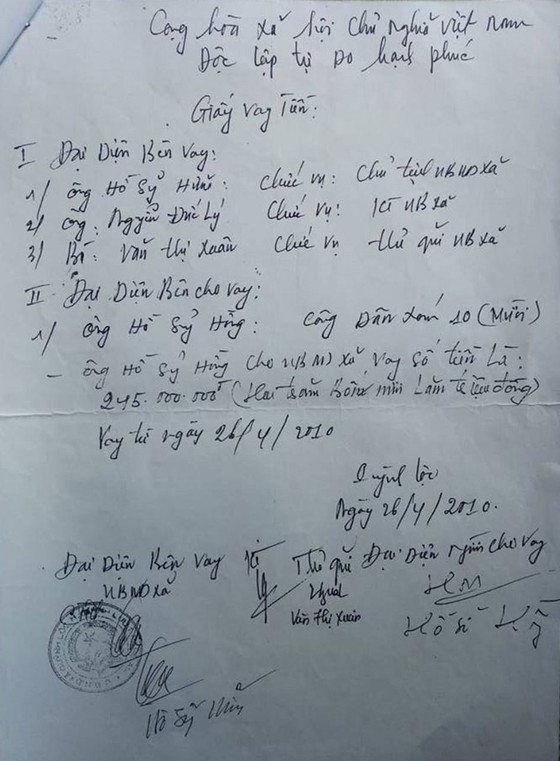 Cộng hòa xã hội chủ nghĩa việt nam
Độc lập tự do hạnh phúc
Giấy vay Tiền:
I Đại Diện Bên vay:
1/ ông Hồ Sỹ Hùng: chức vụ: chủ tịch UBND xã
2/ ông: Nguyễn Đức Lý chức vụ: KT UB xã
3/ Bà: Văn thị Xuân chức vụ thủ quĩ UB xã
II Đại Diện Bên cho vay:
1/ ông Hồ Sỹ Hồng: công Dân xóm 10 (Mười)
- ông Hồ Sỹ Hồng cho UBND xã vay số tiền là:
245.000.000đ (Hai trăm Bốn mươi Lăm triệu đồng)
Vay từ ngày 26/4/2010
Quỳnh lộc
Ngày 26/4/2010.
Đại Diện Bên vay KT Thủ quĩ Đại Diện người cho vay
UBND xã
Văn Thị Xuân
Hồ sĩ
Hồ Sỹ Hùng